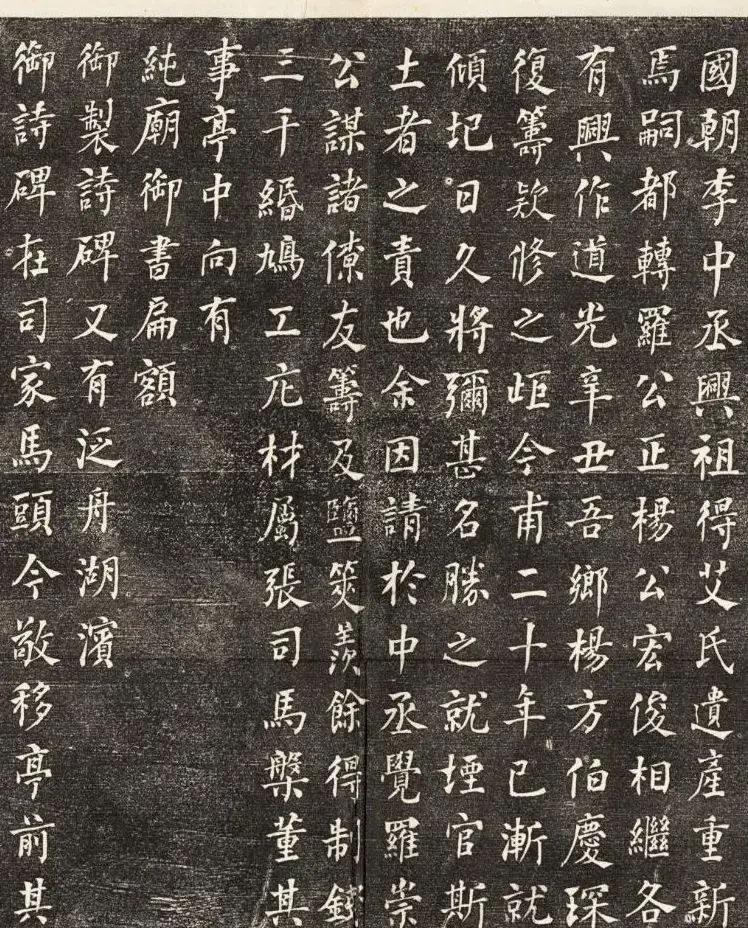 國朝李中丞興祖得艾氏遺產重新
焉嗣都轉羅公正楊公宏俊相繼各
有興作道光辛丑吾鄉楊方伯慶琛
復籌欵修之歫今甫二十年已漸就
傾圯日久將彌甚名勝之就堙官斯
土者之責也余因請於中丞覺羅崇
公謀諸僚友籌及鹽筴羨餘得制錢
三千緡鳩工庀材屬張司馬槃董其
事亭中向有
純廟御書扁額
御製詩碑又有泛舟湖濱
御詩碑在司家馬頭今敬移亭前其